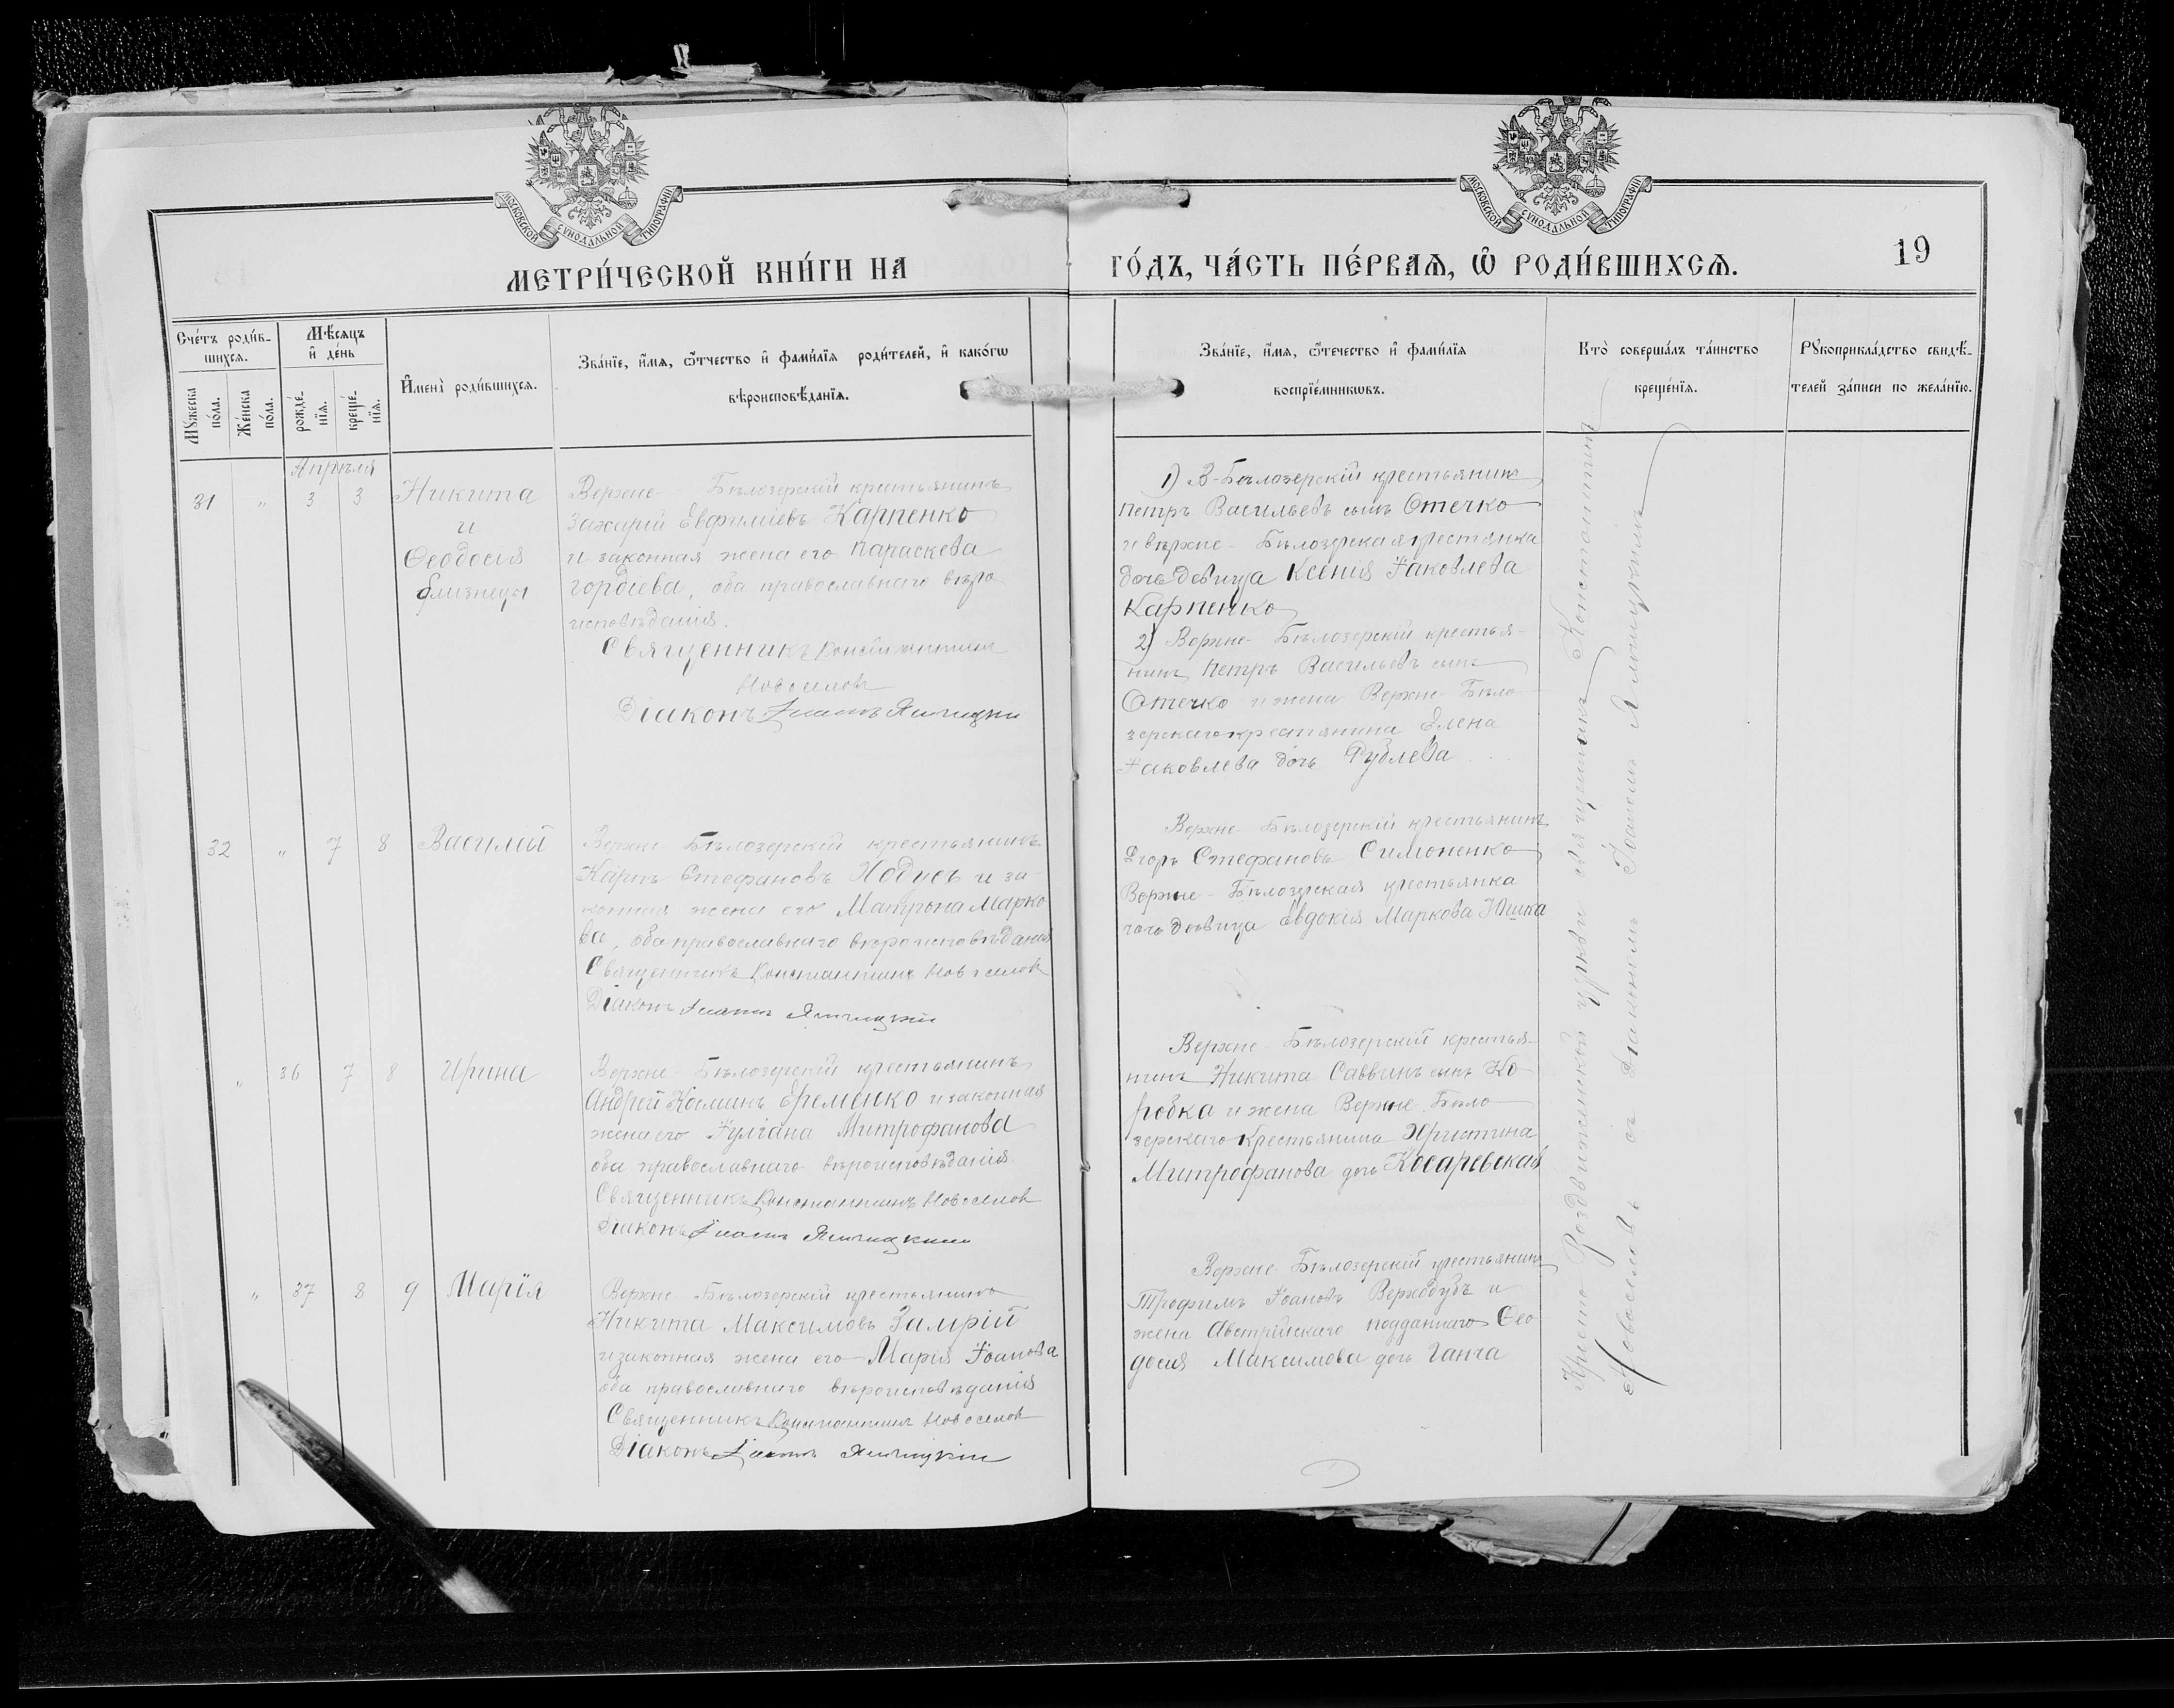 МОСКОВСКОЙ СѴНОДАЛЬНОЙ ТИПОГРАФІИ
МОСКОВСКОЙ СѴНОДАЛЬНОЙ ТИПОГРАФІИ
МЕТРИ́ЧЕСКОЙ КНИ́ГИ НА
ГО́ДЪ, ЧА́СТЬ ПЕ́РВАЯ, Ѿ РОДИ́ВШИХСЯ.
19
Сче́тъ роди́в-
шихся.
Му́жеска
по́ла.
Же́нска
по́ла.
Мѣ́сяцъ
и҆ де́нь
рожде́-
нїя.
креще́-
нїя.
И҆мена̀ роди́вшихся.
Зва́нїе, и҆́мя, ѻ҆́тчество и҆ фами́лїя роди́телей, и҆ како́гѡ
вѣроисповѣ́данїя.
Зва́нїе, и҆́мя, ѻ҆́течество и҆ фами́лїя
воспрїе́мникѡвъ.
Кто̀ соверша́лъ та́инство
креще́нїя.
Рꙋкоприкла́дство свидѣ́-
телей за́писи по жела́нїю.
Апрѣля
31 " 3 3
Никита
и
Ѳеодосія
близнецы
Верхне-Бѣлозерскій крестьянинъ
Захарій Евфиміевъ Карпенко
и законная жена его Параскева
Гордіева, оба православнаго вѣро
исповѣданія.
Священникъ Константинъ
Новоселовъ
Діаконъ Іоаннъ
1) В-Бѣлозерскій крестьянинъ
Петръ Васильевъ сынъ Отечко
и верхне-Бѣлозерская крестянка
дочь девица Ксенія Іаковлева
Карпенко
2) Верхне-Бѣлозерскій крестья-
нинъ Петръ Васильевъ сынъ
Отечко и жена Верхне-Бѣло
зерскаго крестянина Елена
Іаковлева дочь Рублева
32 " 7 8
Василий
Верхне-Бѣлозерскій крестьянинъ
Карпъ Стефановъ Ходусъ и за-
конная жена его Матрона Марко
ва, оба православнаго вѣроисповѣданія
Священникъ Константинъ Новоселовъ
Діаконъ Іоаннъ
Верхне-Бѣлозерскій крестьянинъ
Егоръ Стефановъ Симоненко
Верхне-Бѣлозерская крестьянка
дочь девица Евдокія Маркова Юшка
" 36 7 8
Ирина
Верхне-Бѣлозерскій крестьянинъ
Андрей Косминъ Еременко и законная
жена его Іуліана Митрофанова
оба православнаго вѣроисповѣданія.
Священникъ Константинъ Новоселовъ
Діаконъ Іоаннъ
Верхне-Бѣлозерскій крестья-
нинъ Никита Саввинъ сынъ Ко-
робка и жена Верхне Бѣло
зерскаго Крестьянина Христина
Митрофанова дочь Косаревская
" 37 8 9
Марія
Верхне-Бѣлозерскій крестьянинъ
Никита Максимовъ Замрій
и законная жена его Марія Іоанова
оба православнаго вѣроисповѣданія
Священникъ Константинъ Новоселовъ
Діаконъ Іоаннъ
Верхне-Бѣлозерскій крестьянинъ
Трофимъ Іоановъ Верходубъ и
жена Австрійскаго подданнаго Ѳео
досія Максимова дочь Ганча
Кресто Воздвиженской церкви священникъ Константинъ
Новоселовъ съ діакономъ Іоаномъ